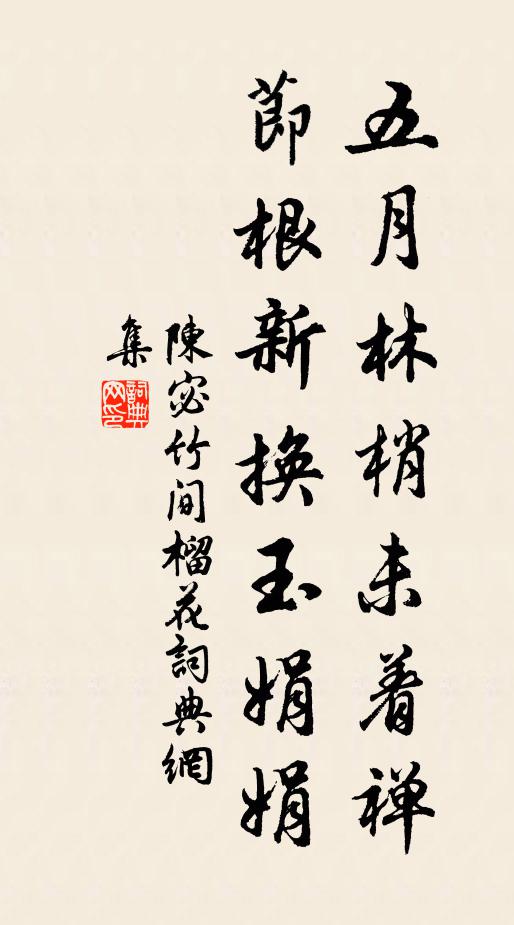 五月林梢未着禅
莭根新换玉娟娟
陳宓竹间榴花詞典網
集
詞典
网印